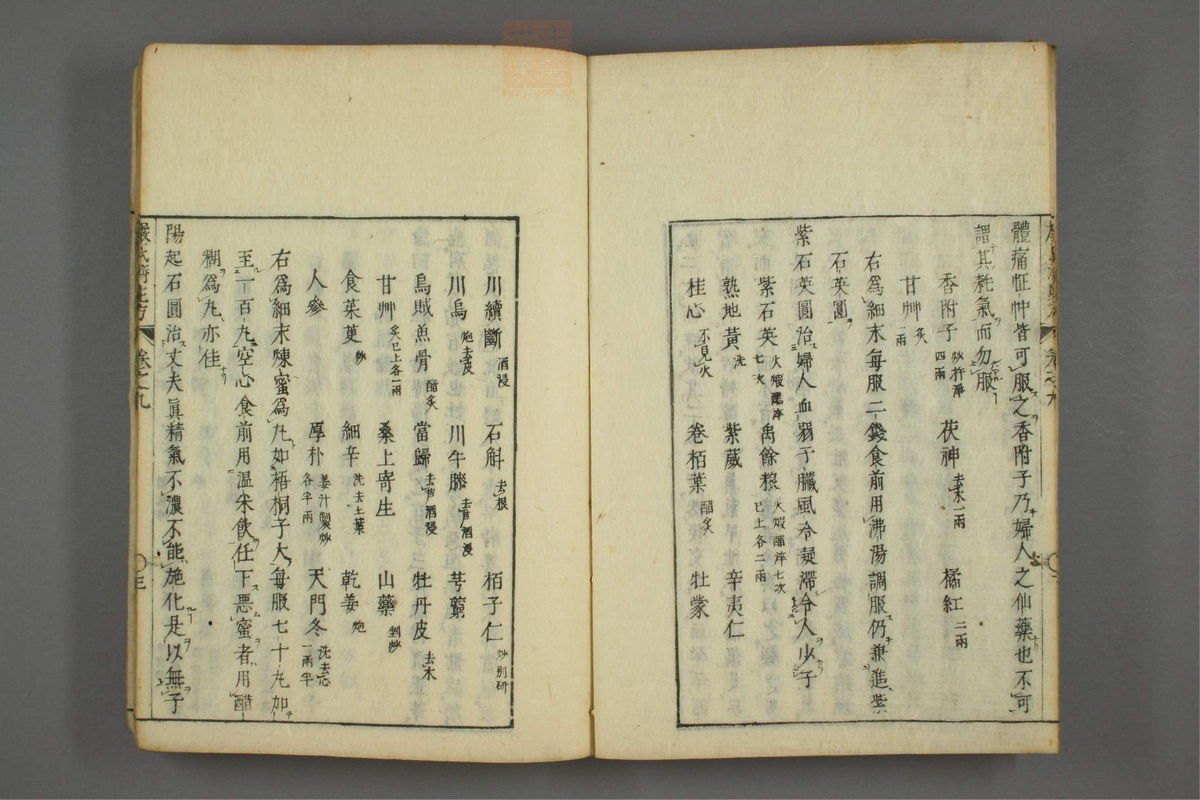 體痛怔忡皆可服之香附子乃婦人之仙藥也不可
謂其耗氣而勿服
香附子 炒杵淨四兩 茯神 去木一兩 橘紅 二兩
甘艸 炙一兩
右為細末每服二錢食前用沸湯調服仍兼進紫
石英圓
紫石英圓治婦人血弱子臟風冷凝滯令人少子
紫石英 火煆醋淬七次 禹餘粮 火煆醋淬七次已上各二兩 辛夷仁
熟地黃 洗 紫葳
桂心 不見火 卷栢葉 醋炙 牡蒙
川續斷 酒浸 石斛 去根 栢子仁 炒別研
川烏 炮去皮 川牛膝 去芦酒浸 芎藭
烏賊魚骨 醋炙 當歸 去芦酒浸 牡丹皮 去木
甘艸 炙已上各一兩 桑上寄生 山藥 剉炒
食茱萸 炒 細辛 洗去土葉 乾姜 炮
人參 厚朴 姜汁製炒各半兩 天門冬 洗去心一兩半
右為細末煉蜜為丸如梧桐子大每服七十丸加
至一百丸空心食前用温米飲任下惡蜜者用醋
糊為丸亦佳
陽起石圓治丈夫眞精氣不濃不能施化是以無子
巖氏濟生方 卷之九 三